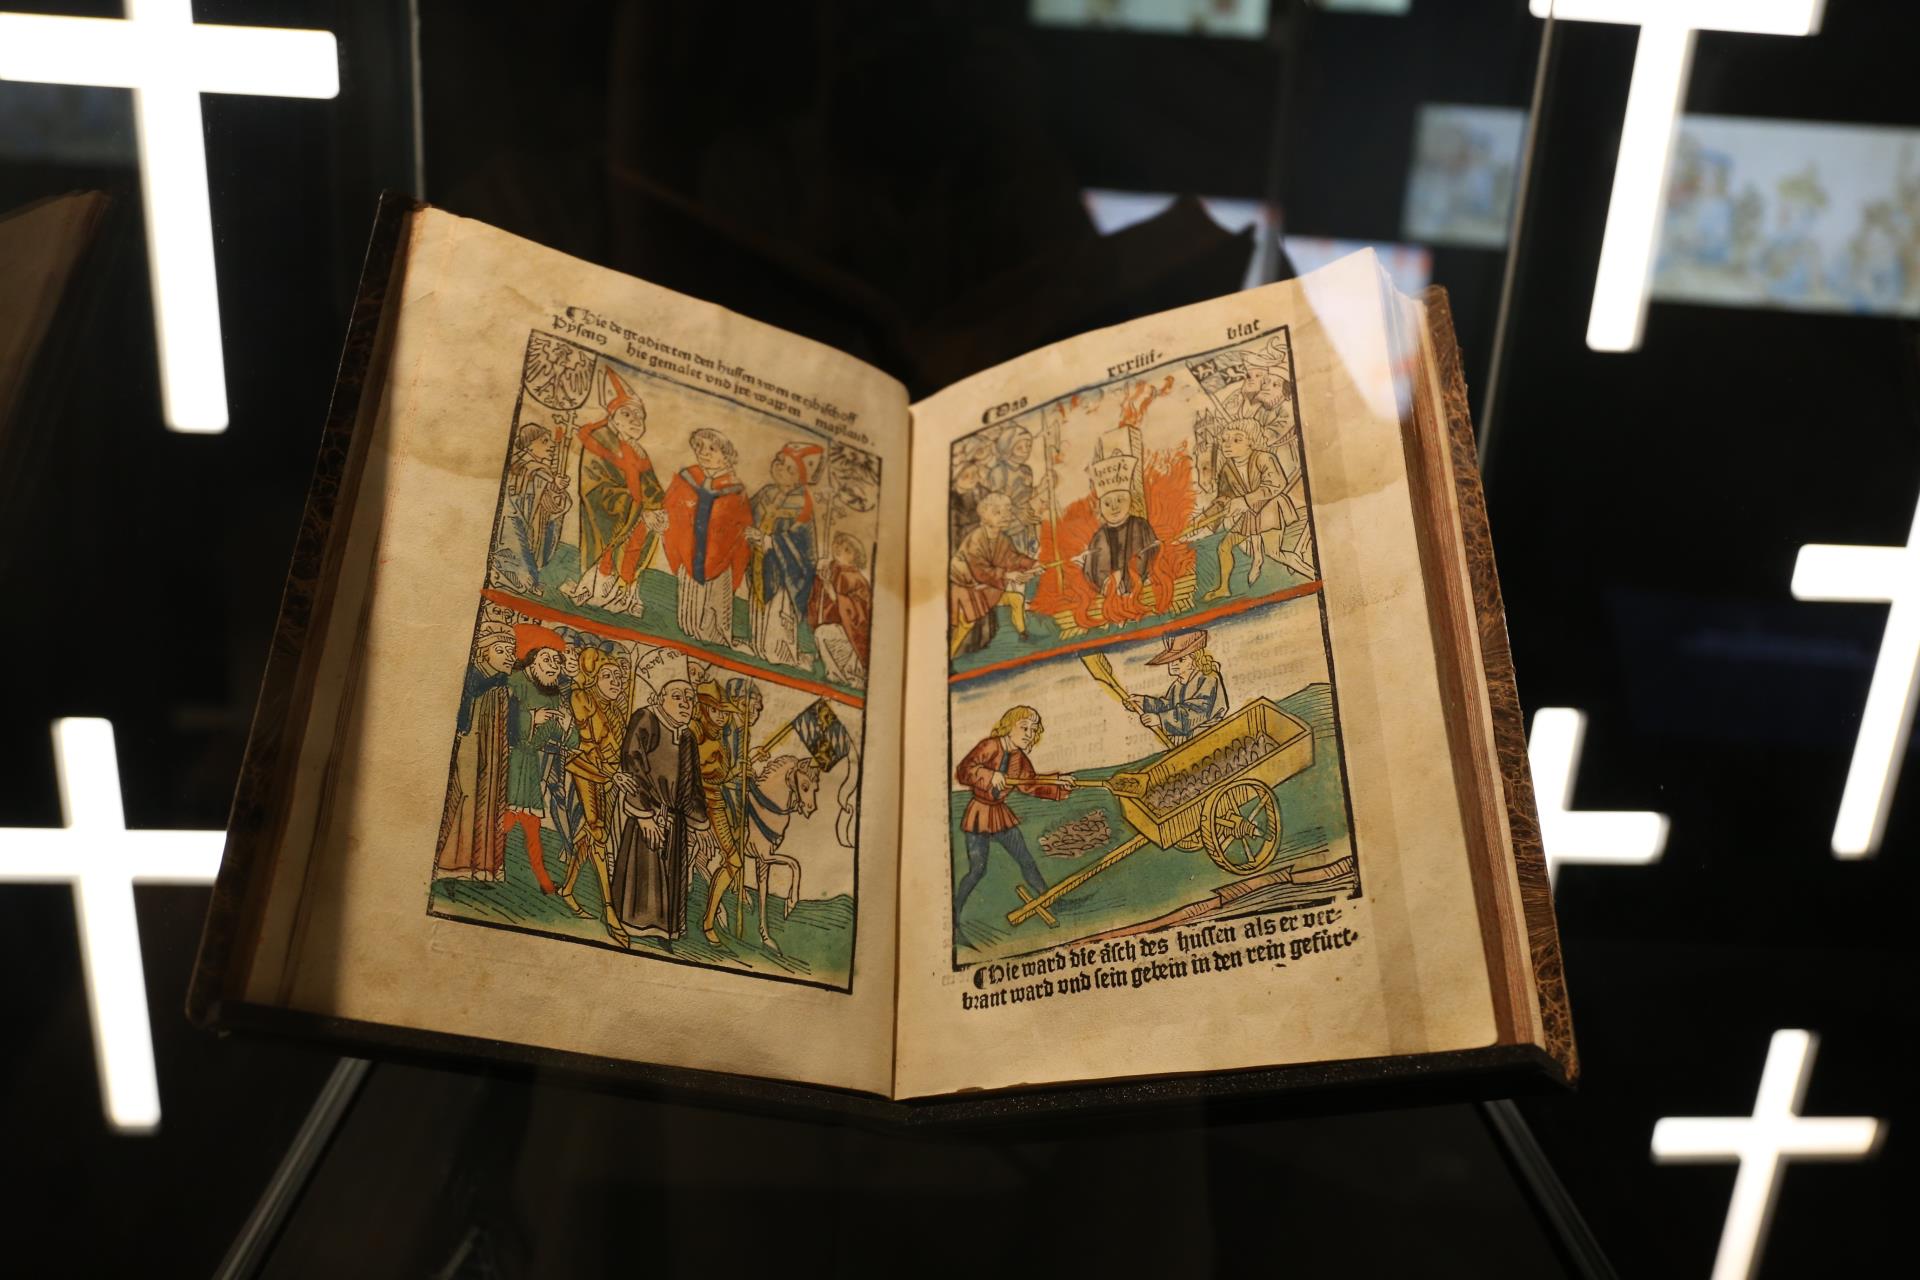 ¶Hie degradierten den hussen zwen ertzbischoff
Pysentz hie gemalet vnd jre wappen mayland.
heresi
¶Das xxxiiii. blat
heresi
archa
¶Hie ward die äsch des hussen als er ver-
brant ward vnd sein gebein in den rein gefürt.